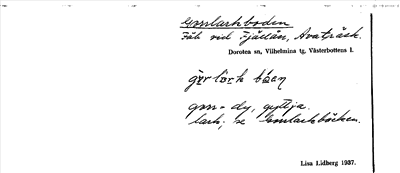 Gorrlarkboden
Fäb vid Fjällån, Avaträsk.
Dorotea sn, Vilhelmina tg. Västerbottens l.
gorr = dy, gyttja.
lark; se Gorrlarkbäcken.
Lisa Lidberg 1937.